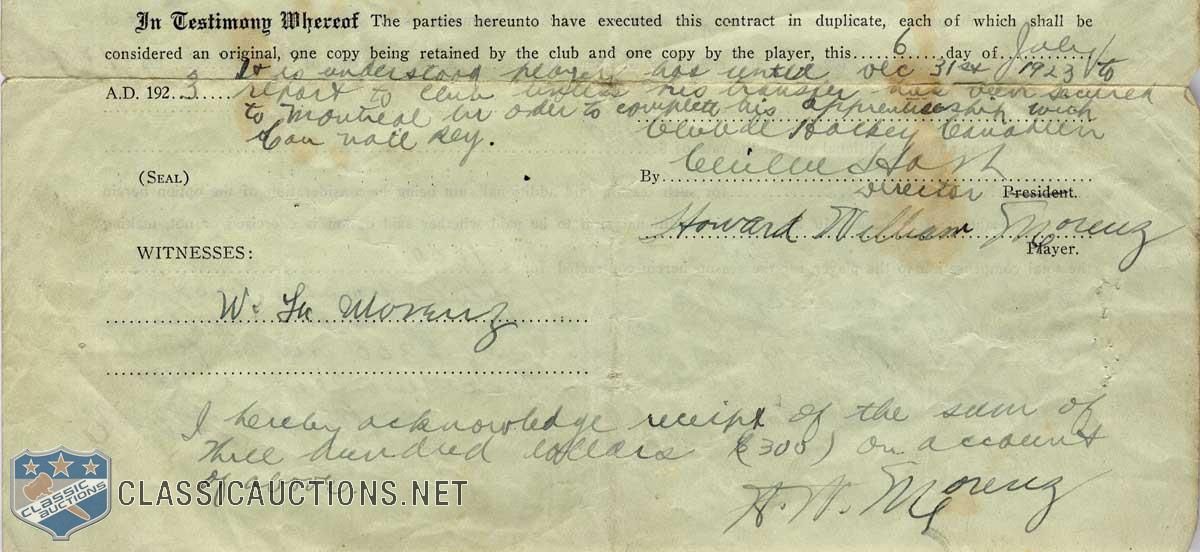 In Testimony Whereof The parties hereunto have executed this contract in duplicate, each of which shall be
considered an original, one copy being retained by the club and one copy by the player, this 6 day of July
It is understood player has until Dec 31st 1923 to
A.D. 1923 report to club unless his transfer has been secured
to Montreal in order to complete his apprenticeship with
Can Nail Rey. Club de Hockey Canadien
(SEAL) By
Director President.
Howard William Morenz
Player.
WITNESSES:
W. Morenz
I hereby acknowledge receipt of the sum of
three hundred dollars ($300) on account
of
H. W. Morenz
CLASSIC AUCTIONS
CLASSICAUCTIONS.NET